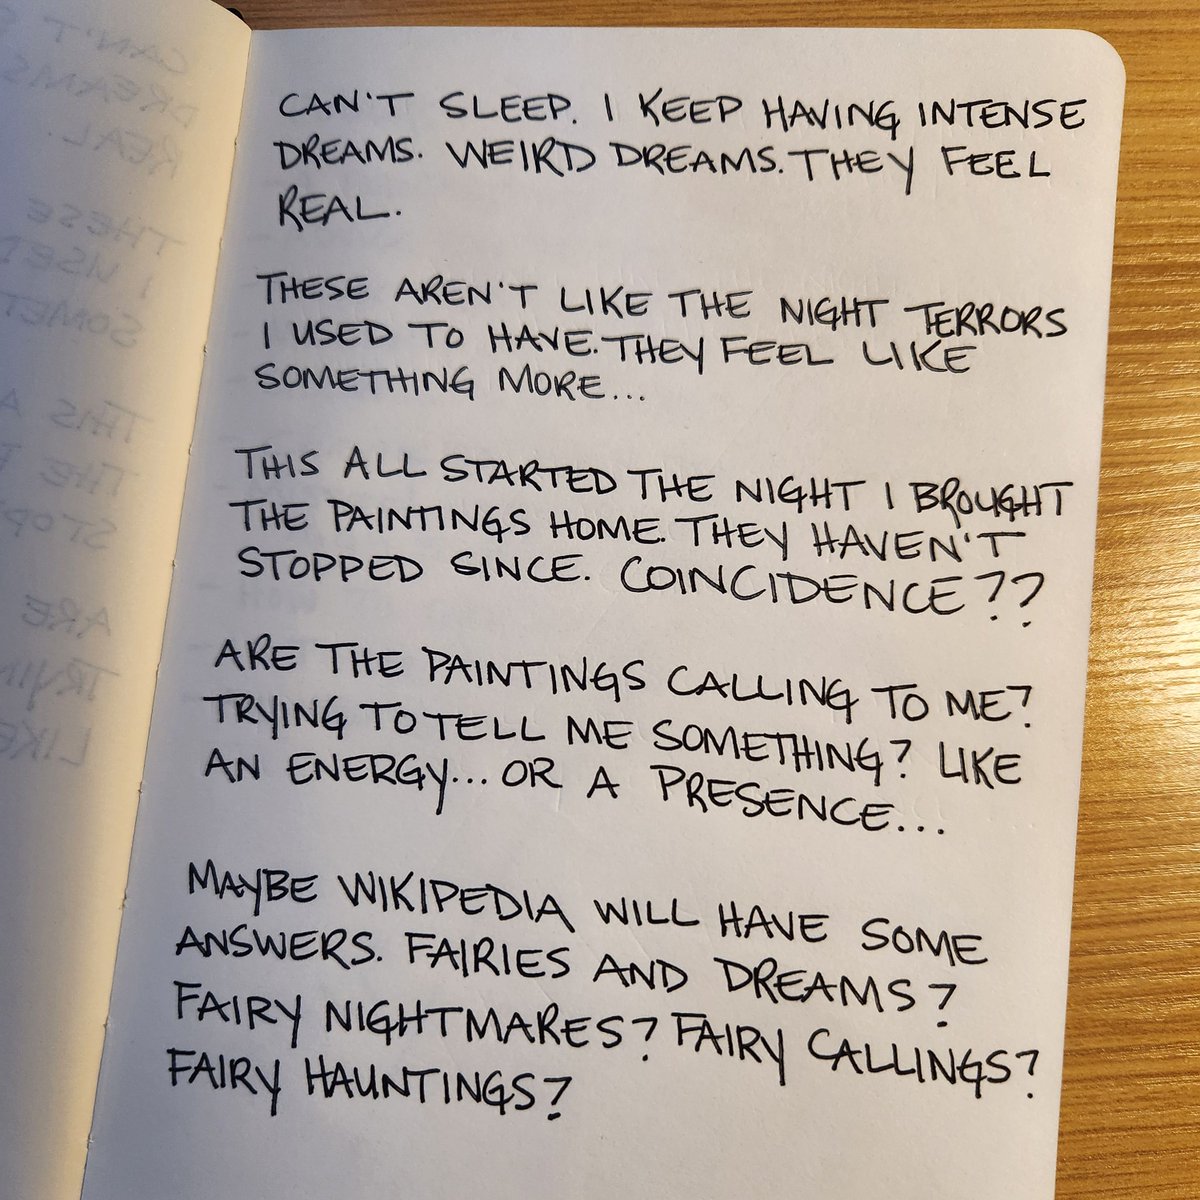 CAN'T SLEEP. I KEEP HAVING INTENSE
DREAMS. WEIRD DREAMS. THEY FEEL
REAL.
THESE AREN'T LIKE THE NIGHT TERRORS
I USED TO HAVE. THEY FEEL LIKE
SOMETHING MORE...
THIS ALL STARTED THE NIGHT I BROUGHT
THE PAINTINGS HOME. THEY HAVEN'T
STOPPED SINCE. COINCIDENCE??
ARE THE PAINTINGS CALLING TO ME?
TRYING TO TELL ME SOMETHING? LIKE
AN ENERGY... OR A PRESENCE...
MAYBE WIKIPEDIA WILL HAVE SOME
ANSWERS. FAIRIES AND DREAMS?
FAIRY NIGHTMARES? FAIRY CALLINGS?
FAIRY HAUNTINGS?